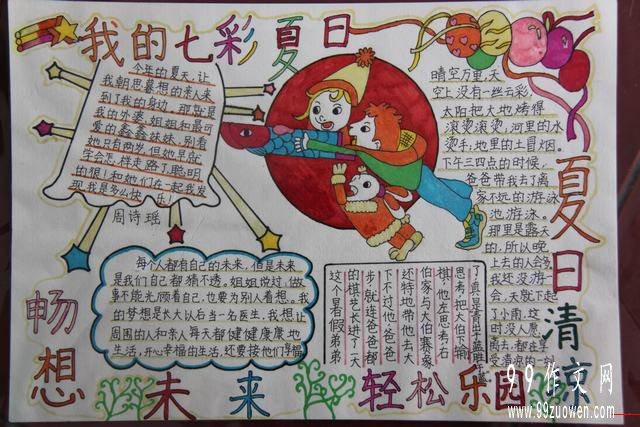 我的七彩夏日
今年的夏天，让
我朝思暮想的亲人来
到了我的身边，那就是
我的外婆、姐姐和最可
爱的鑫鑫妹妹，别看
她只有两岁但她早就
学会怎样走路了聪明
的狠！和她们在一起我发
现我是多么快乐！
周诗瑶
晴空万里，天
空上没有一丝云彩，
太阳把大地烤得
滚烫滚烫，河里的水
烫手，地里的土冒烟。
下午三四点的时候，
爸爸带我去了离
家不远的游泳
池游泳。
那里是露天
的，所以晚
上去的人会多
我还没游
会，天就下起
了小雨，这
时没人愿
离去，都在享
受清凉的一刻
夏日清凉
每个人都有自己的未来，但是未来
是我们自己都猜不透，姐姐说过，做
事不能光顾看自己，也要为别人着想。我
的梦想是长大以后当一名医生，我想让
周围的人和亲人每天都健健康康地
生活，开心幸福的生活，还要接他们享福
畅想未来
了真是青出于蓝胜于蓝
思考，把大伯下输
棋，他左思考右
伯家与大伯赛象
还特地带他去大
下不过他，爸爸
步，就连爸爸都
的棋艺长进了一大
这个暑假弟弟
轻松乐园
99作文网
www.99zuowen.com